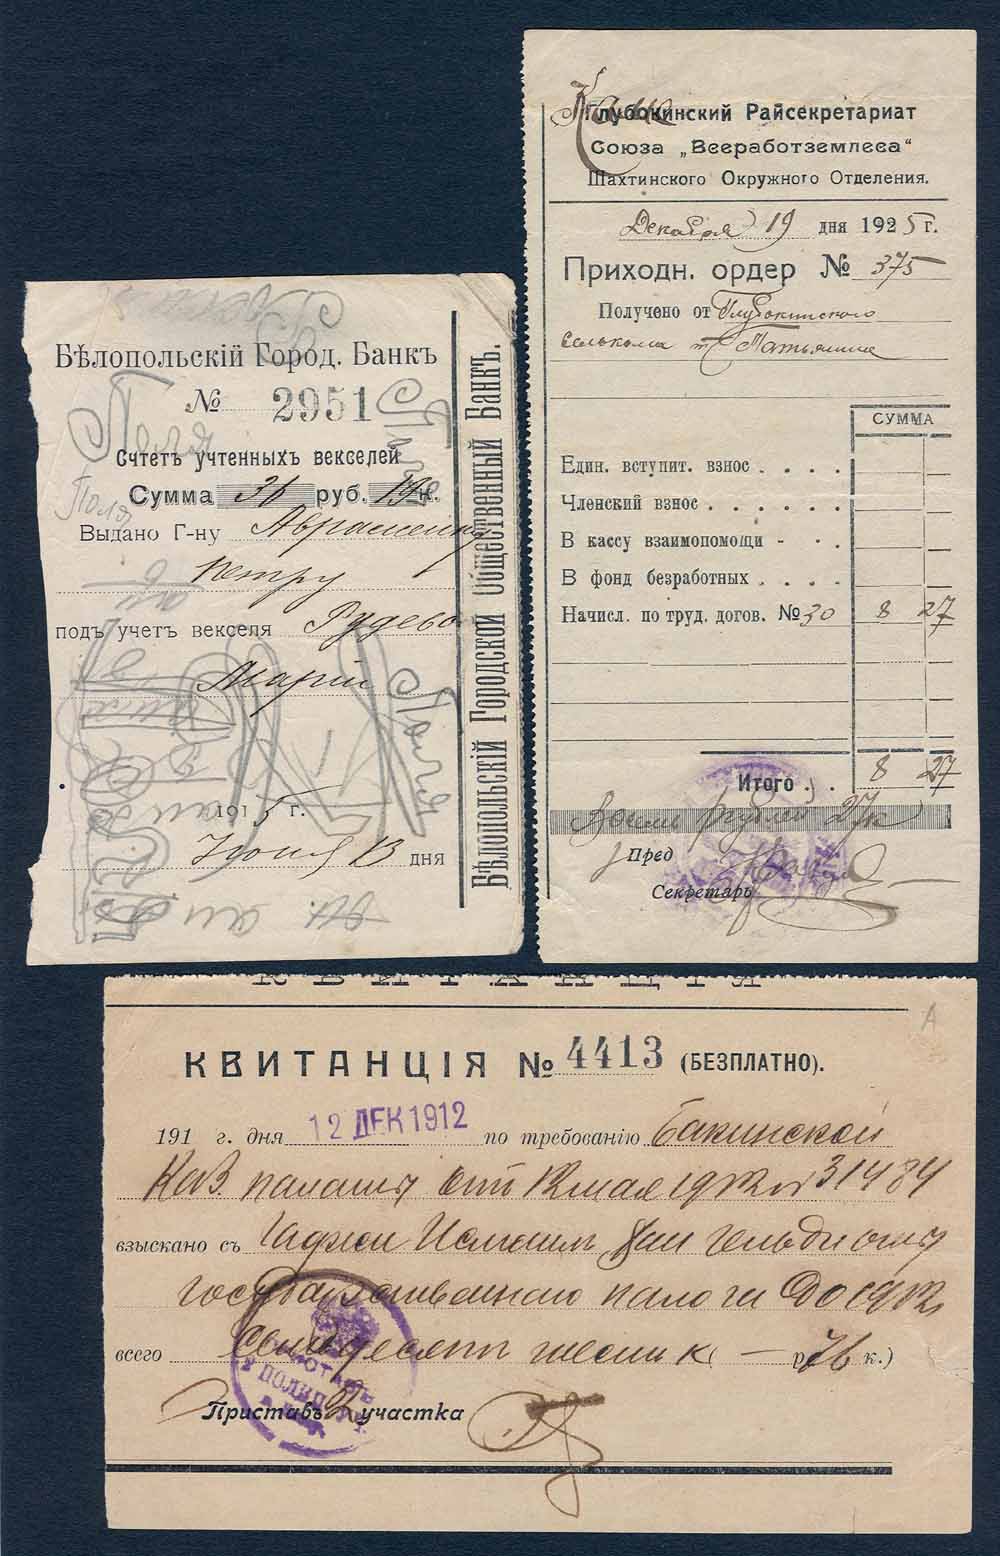 Бѣлопольскій Город. Банкъ
№ 2951
Счтетъ учтенныхъ векселей
Сумма 31 руб. к.
Выдано Г-ну Авраменку
Петру
подъ учет векселя Рудево
Маріи
1915 г.
Іюня 13 дня
Бѣлопольскій Городской Общественный Банкъ.
Поля
Поля
Поля
Глубокинский Райсекретариат
Союза „Всеработземлеса“
Шахтинского Окружного Отделения.
Декабря 19 дня 1925 г.
Приходн. ордер № 375
Получено от Глубокинского
селькома т.
СУММА
Един. вступит. взнос . . . .
Членский взнос . . . . . .
В кассу взаимопомощи - . .
В фонд безработных . . . .
Начисл. по труд. догов. №30 8 27
Итого . . 8 27
Восемь рублей 27 к
Пред
Секретарь
КВИТАНЦІЯ
КВИТАНЦІЯ № 4413 (БЕЗПЛАТНО).
191 г. дня 12 ДЕК 1912 по требованію Бакинской
Каз. палаты от 12 мая 1912 № 31484
взыскано съ Гаджи Исмаил
государственнаго налога 1912
всего Семьдесят шесть к ( — р. 76 к.)
Приставъ 2 участка
А